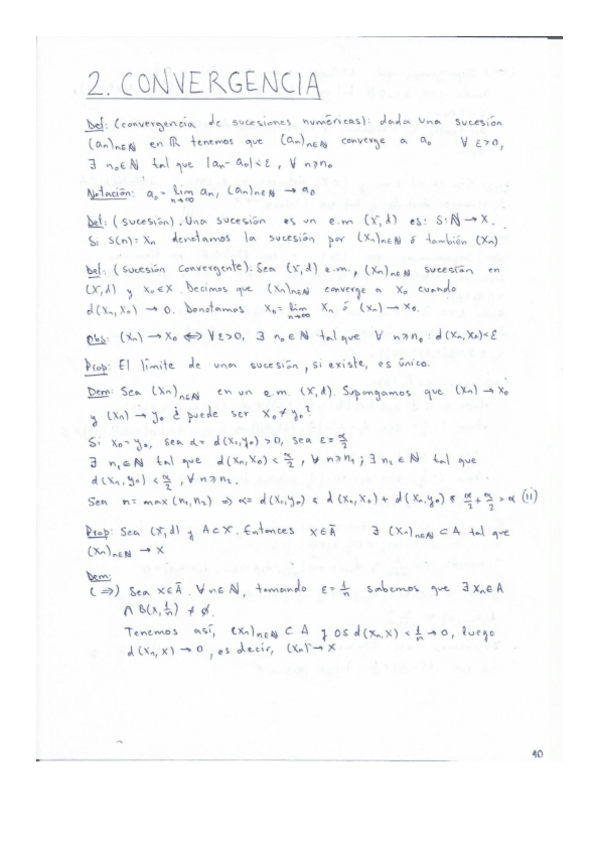 2. CONVERGENCIA
Def: (convergencia de sucesiones numéricas): dada una sucesión
(an)n∈ℕ en ℝ tenemos que (an)n∈ℕ converge a a₀ ∀ ε>0,
∃ n₀∈ℕ tal que |an-a₀|<ε, ∀ n≥n₀
Notación: a₀ = lim n→∞ an, (an)n∈ℕ → a₀
Def: (sucesión). Una sucesión es un e.m (X,d) es: S:ℕ→X.
Si S(n)=Xn denotamos la sucesión por (Xn)n∈ℕ ó también (Xn)
Def: (sucesión convergente): Sea (X,d) e.m., (Xn)n∈ℕ sucesión en
(X,d) y x₀∈X. Decimos que (Xn)n∈ℕ converge a X₀ cuando
d(Xn,X₀) → 0. Denotamos X₀= lim n→∞ Xn ó (Xn)→X₀.
Obs: (Xn)→X₀ ⇔ ∀ε>0, ∃ n₀∈ℕ tal que ∀ n≥n₀: d(Xn,X₀)<ε
Prop: El límite de una sucesión, si existe, es único.
Dem: Sea (Xn)n∈ℕ en un e.m. (X,d). Supongamos que (Xn)→X₀
y (Xn)→y₀ ¿puede ser X₀≠y₀?
Si X₀=y₀, sea α= d(X₀,y₀)>0, sea ε=α/2
∃ n₁∈ℕ tal que d(Xn,X₀)<α/2, ∀ n≥n₁; ∃ n₂∈ℕ tal que
d(Xn,y₀)<α/2, ∀ n≥n₂.
Sea n=max(n₁,n₂) ⇒ α= d(X₀,y₀) ≤ d(Xn,X₀) + d(Xn,y₀) < α/2+α/2=α (!!)
Prop: Sea (X,d) y A⊂X. Entonces X∈Ā ∃ (Xn)n∈ℕ⊂A tal que
(Xn)n∈ℕ → X
Dem:
(⇒) Sea X∈Ā. ∀n∈ℕ, tomando ε=1/n sabemos que ∃ Xn∈A
∩ B(X,1/n) ≠ ∅.
Tenemos así, (Xn)n∈ℕ⊂A y 0≤d(Xn,X)<1/n→0, luego
d(Xn,X)→0, es decir, (Xn)→X
40